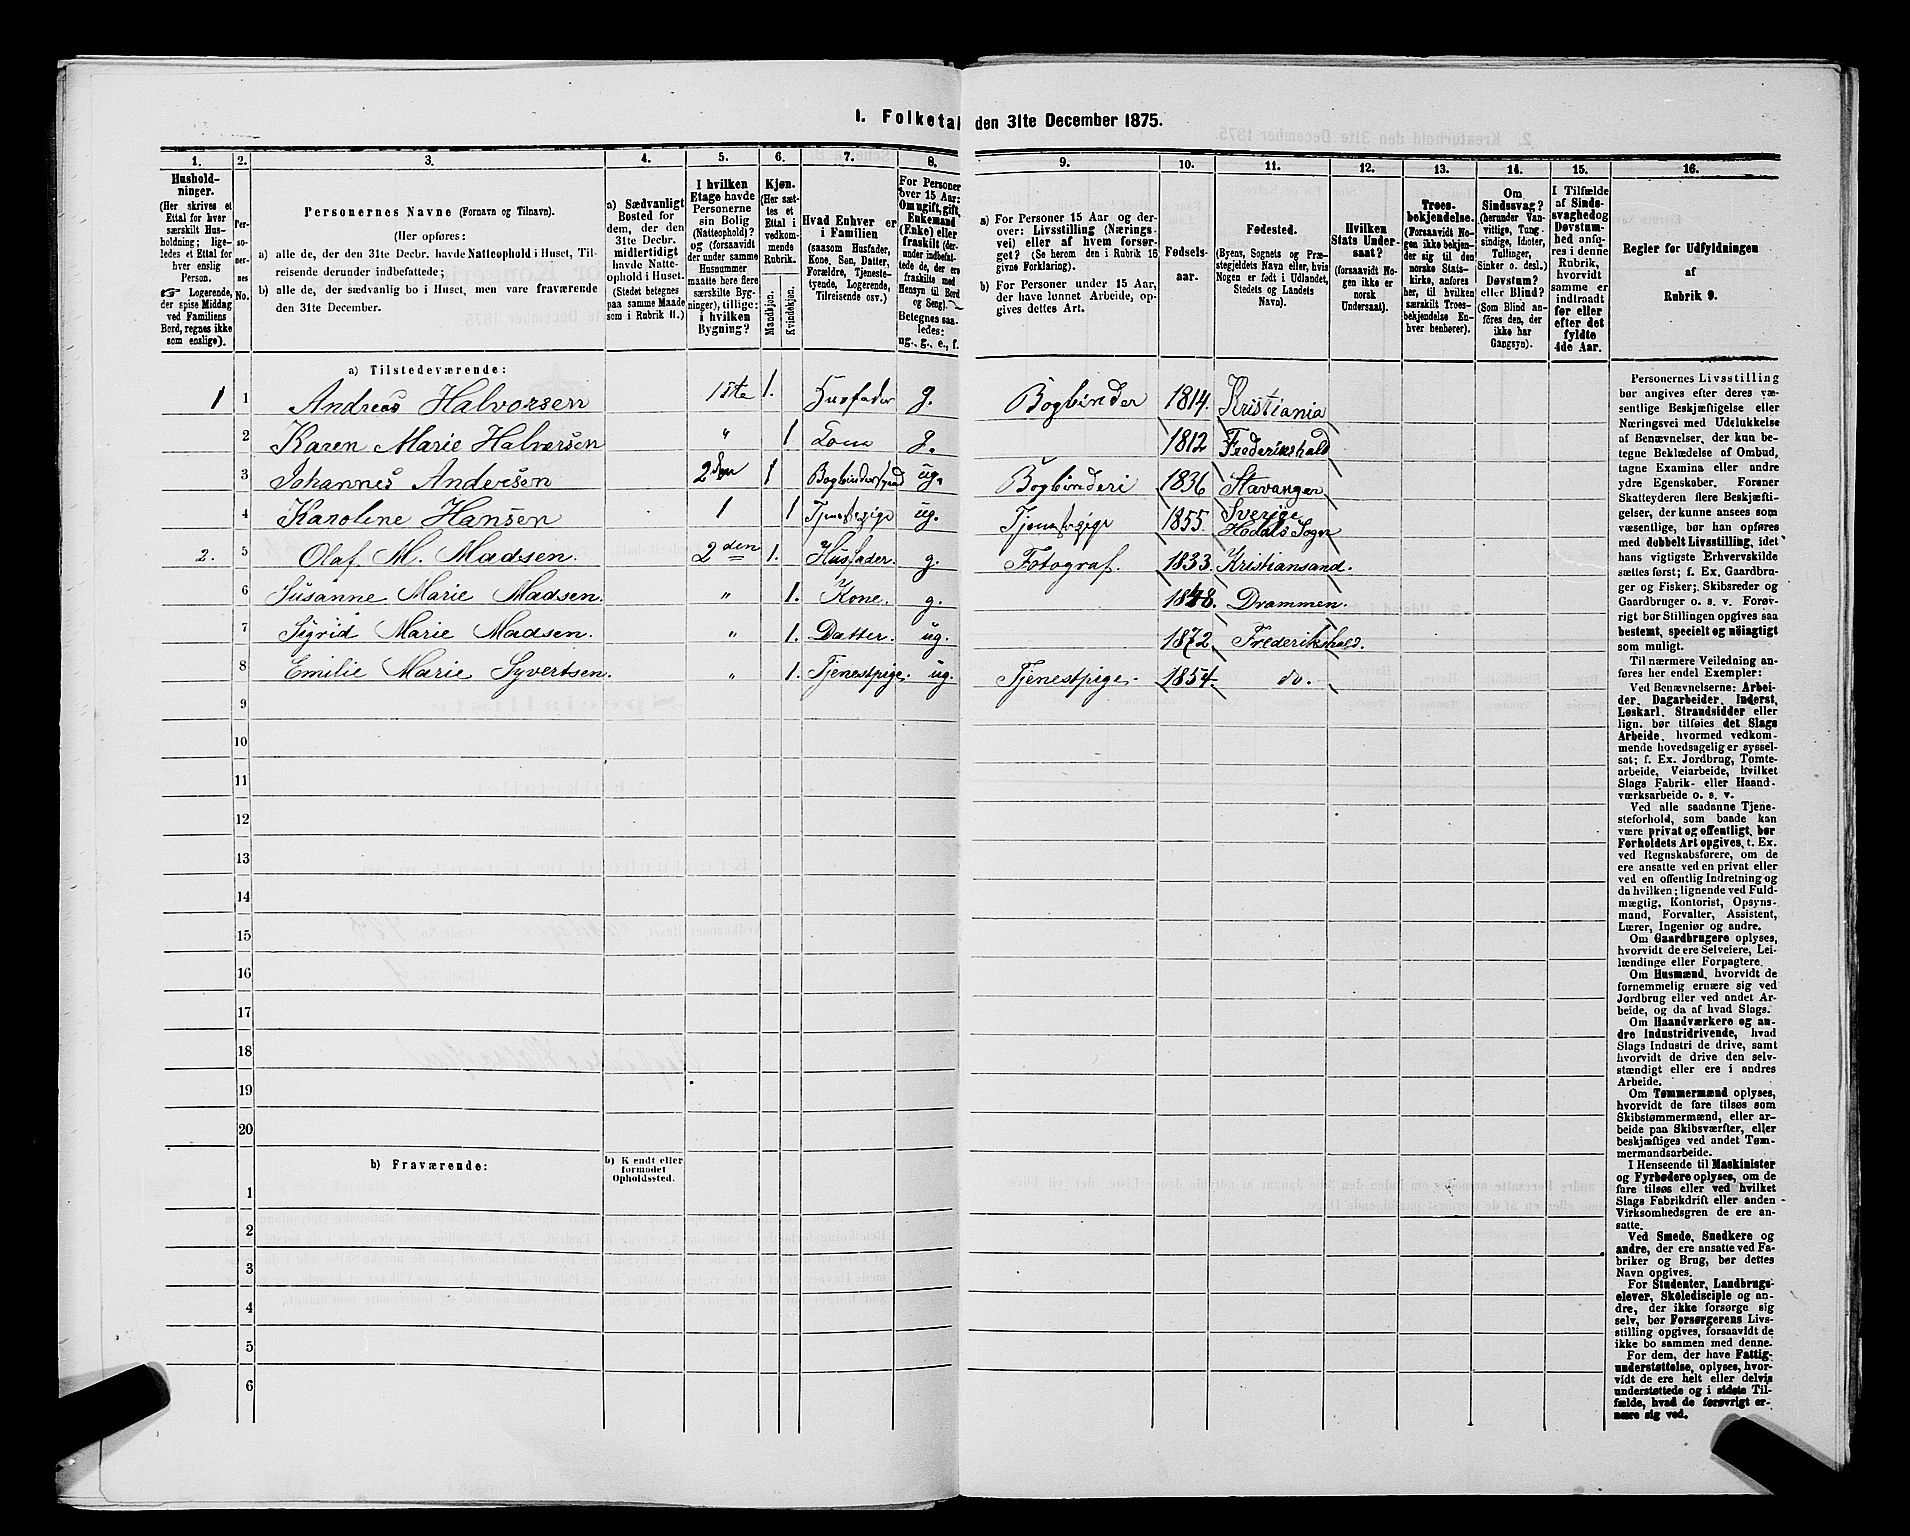 1. Folketal den 31te December 1875.
1. 2. 3. 4. 5. 6. 7. 8. 9. 10. 11. 12. 13. 14. 15. 16.
Hushold-
ninger.
(Her skrives et
Ettal for hver
særskilt Hus-
holdning; lige-
ledes et Ettal for
hver enslig
Person.
☞ Logerende,
der spise Middag
ved Familiens
Bord, regnes ikke
som enslige).
Per-
so-
ner-
nes
No.
Personernes Navne (Fornavn og Tilnavn).
(Her opføres:
a) alle de, der den 31te Decbr. havde Natteophold i Huset, Til-
reisende derunder indbefattede;
b) alle de, der sædvanlig bo i Huset, men vare fraværende
den 31te December.
a) Sædvanligt
Bosted for
dem, der den
31te Decbr.
midlertidigt
havde Natte-
ophold i Huset.
(Stedet betegnes
paa samme Maade
som i Rubrik 11.)
I hvilken
Etage havde
Personerne
sin Bolig
(Natteophold)?
og (forsaavidt
der under samme
Husnummer
maatte høre flere
særskilte Byg-
ninger), tillige:
i hvilken
Bygning?
Kjøn.
(Her sæt-
tes et
Ettal i
vedkom-
mende
Rubrik.
Mandkjøn.
Kvindekjøn.
Hvad Enhver er
i Familien
(saasom Husfader,
Kone, Søn, Datter,
Forældre, Tjeneste-
tyende, Logerende,
Tilreisende osv.)
For Personer
over 15 Aar:
Om ugift, gift,
Enkemand
(Enke) eller
fraskilt (der-
under indbefat-
tede de, der ere
fraskilte med
Hensyn til Bord
og Seng).
Betegnes saa-
ledes:
ug., g., e., f.
a) For Personer 15 Aar og der-
over: Livsstilling (Nærings-
vei) eller af hvem forsør-
get? (Se herom den i Rubrik 16
givne Forklaring).
b) For Personer under 15 Aar,
der have lønnet Arbeide, op-
gives dettes Art.
Fødsels-
aar.
Fødested.
(Byens, Sognets og Præ-
stegjeldets Navn eller, hvis
Nogen er født i Udlandet,
Stedets og Landets
Navn).
Hvilken
Stats Under-
saat?
(forsaavidt No-
gen ikke er
norsk
Undersaat).
Troes-
bekjendelse.
(Forsaavidt No-
gen ikke bekjen-
der sig til den
norske Stats-
kirke, anføres
her, til hvilken
særskilt Troes-
bekjendelse En-
hver henhører).
Om
Sindssvag?
(herunder Van-
vittige, Tung-
sindige, Idioter,
Tullinger,
Sinker o. desl.)
Døvstum?
eller Blind?
(Som Blind an-
føres den, der
ikke har
Gangsyn).
I Tilfælde
af Sinds-
svaghed og
Døvstum-
hed anfø-
res i denne
Rubrik,
hvorvidt
samme er
indtraadt
før eller
efter det
fyldte
4de Aar.
Regler for Udfyldningen
af
Rubrik 9.
a) Tilstedeværende:
1 1 Andreas Halvorsen 1ste 1. Husfader g. Bogbinder 1814. Kristiania
2 Karen Marie Halversen " 1 Kone g. 1812 Frederikshald
3 Johannes Andersen 2den 1 ug. Bogbinderi 1836 Stavanger
4 Karoline Hansen 1 1 Tjenestepige ug. Tjenestepige 1855. Sverige
Sogn
2. 5 Olaf M. Madsen. 2den 1. Husfader. g. Fotograf. 1833. Kristiansand.
6 Susanne Marie Madsen. " 1. Kone. g. 1848. Drammen.
7 Sigrid Marie Madsen. " 1. Datter. ug. 1872. Frederikshald.
8 Emilie Marie Syvertsen. " 1. Tjenestpige. ug. Tjenestpige. 1854. do.
9
10
11
12
13
14
15
16
17
18
19
20
b) Fraværende:
b) Kjendt eller
formodet
Opholdssted.
1
2
3
4
5
6
Personernes Livsstilling
bør angives efter deres væ-
sentlige Beskjæftigelse eller
Næringsvei med Udelukkelse
af Benævnelser, der kun be-
tegne Beklædelse af Ombud,
tagne Examina eller andre
ydre Egenskaber. Forener
Skatteyderen flere Beskjæfti-
gelser, der kunne ansees som
væsentlige, bør han opføres
med dobbelt Livsstilling, idet
hans vigtigste Erhvervskilde
sættes først; f. Ex. Gaardbru-
ger og Fisker; Skibsreder og
Gaardbruger o. s. v. Forøv-
rigt bør Stillingen opgives saa
bestemt, specielt og nøiagtigt
som muligt.
Til nærmere Veiledning an-
føres her endel Exempler:
Ved Benævnelserne: Arbei-
der, Dagarbeider, Inderst,
Løskarl, Strandsidder eller
lign. bør tilføies det Slags
Arbeide, hvormed vedkom-
mende hovedsagelig er syssel-
sat; f. Ex. Jordbrug, Tomte-
arbeide, Veiarbeide, hvilket
Slags Fabrik- eller Haand-
værksarbeide o. s. v.
Ved alle saadanne Tjene-
steforhold, som baade kan
være privat og offentligt, bør
Forholdets Art opgives, t. Ex.
ved Regnskabsførere, om de
ere ansatte ved en privat eller
ved en offentlig Indretning og
da hvilken; lignende ved Fuld-
mægtig, Kontorist, Opsyns-
mand, Forvalter, Assistent,
Lærer, Ingeniør og andre.
Om Gaardbrugere oplyses,
hvorvidt de ere Selveiere, Lei-
lændinge eller Forpagtere.
Om Husmænd, hvorvidt de
fornemmelig ernære sig ved
Jordbrug eller ved andet Ar-
beide, og da af hvad Slags.
Om Haandværkere og an-
dre Industridrivende, hvad
Slags Industri de drive, samt
hvorvidt de drive den selv-
stændigt eller ere i andres
Arbeide.
Om Tømmermænd oplyses,
hvorvidt de fare tilsøs som
Skibstømmermænd, eller ar-
beide paa Skibsværfter, eller
beskjæftiges ved andet Tøm-
mermandsarbeide.
I Henseende til Maskinister
og Fyrbødere oplyses, om de
fare tilsøs eller ved hvilket
Slags Fabrikdrift eller anden
Virksomhedsgren de ere an-
satte.
Ved Smede, Snedkere og
andre, der ere ansatte ved Fa-
briker og Brug, bør dettes
Navn opgives.
For Studenter, Landbrugs-
elever, Skoledisciple og an-
dre, der ikke forsørge sig
selv, bør Forsørgerens Livs-
stilling opgives, forsaavidt de
ikke bo sammen med denne.
For dem, der have Fattig-
understøttelse, oplyses, hvor-
vidt de ere helt eller delvis
understøttede og i sidste Til-
fælde, hvad de forøvrigt er-
nære sig ved.